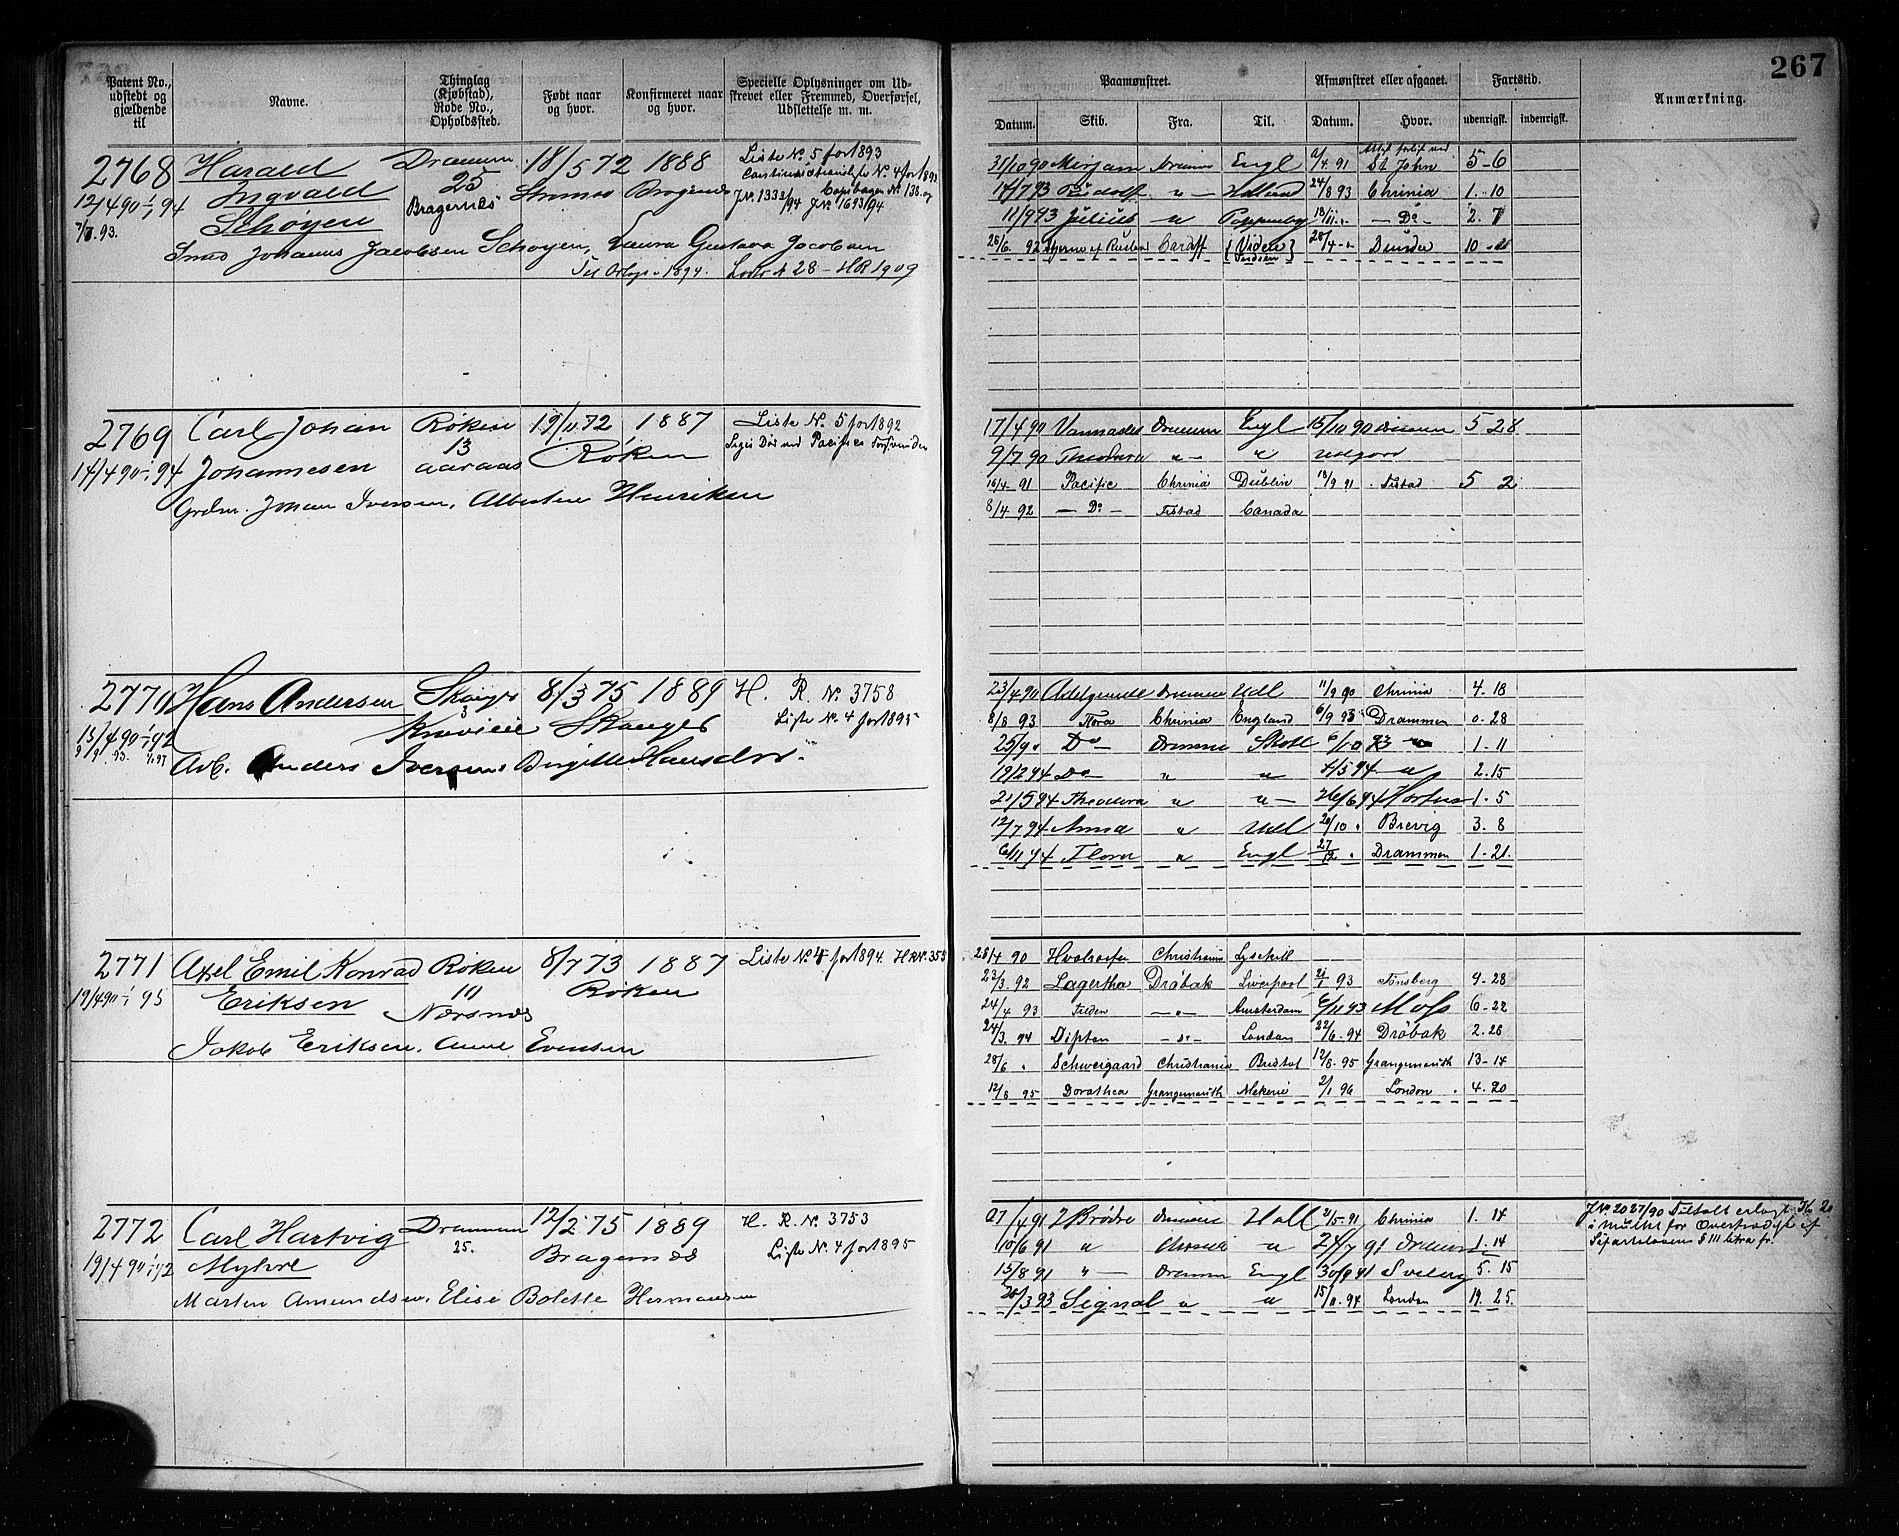 267
Patent No., udstedt og gjældende til
Navne.
Thinglag (Kjøbstad), Rode No., Opholdssted.
Født naar og hvor.
Konfirmeret naar og hvor.
Specielle Oplysninger om Udskrevet eller Fremmed, Overførsel, Udslettelse m. m.
Paamønstret.
Afmønstret eller afgaaet.
Fartstid.
Anmærkning.
Datum. Skib. Fra. Til. Datum. Hvor. udenrigsk. indenrigsk.
2768 Harald Drammen 18/5 72 1888 Liste No. 5 for 1893
12/4 90 - 1/1 94 Ingvald 25 Strømsø Bragernes
Schøyen Bragernæs J.No. 1333/94 J.No 1693/94
Johannes Jacobsen Schøyen, Laura Gustava Jacobsen
1894. Lods No 28 - HR 1909
31/10 90 Mirjam Drammen Engl 91 St John 5-6
14/7 93 Rudolf " Holland 24/8 93 Chrinia 1-10
11/9 93 Julius " Do 2. 7
92 Cardiff
2769 Carl Johan Røken 19/11 72 1887 Liste No. 5 for 1892
14/4 90 - 1/1 94 Johannesen 13 Aaraas Røken
Grdm. Johan Iversen, Albertine Henriksen
17/4 90 Drammen Engl 15/10 90 Drammen 5 28
9/7 90 Theodora " " udgaard
16/4 91 Pacific Chrinia Dublin 18/9 91 Fistad 5 2
8/4 92 Do Fistad Canada
2770 Hans Andersen Skoger 8/3 75 1889 H. R. No. 3758
15/4 90 - 1/1 92 3 Skoger Liste No. 4 for 1895
Arb. Anders Iversen, Birgitte Hansdtr.
23/4 90 Adelgunde Drammen Udl 11/9 90 Chrinia 4. 18
8/8 93 Flora Chrinia England 6/9 93 Drammen 0. 28
25/9 " Do Drammen Skotl 6/10 93 " 1-11
19/2 94 Do " " 4/5 94 " 2. 15
21/5 94 Theodora " " 26/6 94 Horten 1. 5
12/7 94 Anna " Udl 20/10 " Brevig 3. 8
6/11 94 Flora " Engl 27/12 " Drammen 1-21
2771 Axel Emil Konrad Røken 8/7 73 1887 Liste No. 4 for 1894.
19/4 90 - 1/1 95 Eriksen 10 Røken
Nærsnes
Jakob Eriksen, Anne Evensen
25/4 90 Christiania Lysekill
23/3. 92 Lagertha Drøbak Liverpool 21/1 93 Tønsberg 9. 28
24/4 93 Amsterdam 6/11 93 Moss 6-22
24/3. 94 London 22/6. 94 Drøbak 2. 28
28/6 " Schweigaard Christiania Bristol 12/8. 95 Grangemouth 13-14
12/8 95 Dorathea Grangemouth 2/1 96 London 4. 20
2772 Carl Hartvig Drammen 12/2 75 1889 H. R. No. 3753
19/4 90 - 1/1 92 Myhre 25. Bragernæs Liste No. 4 for 1895
Marten Amundsen, Elise Bolette Hermansen
27/4 91 7 Brødre Drammen Holl 2/5-91 Chrinia 1. 14
10/6 91 " Chrinia " 24/7 91 Drammen 1. 14
15/8 91 " Drammen Engl 30/9 91 Svelvig 5. 15
28/3 93 Signal " " 15/11. 94 London 19. 25
J No 2027/90 Tiltalt erlagt Kr 20
i Mulkt for Overtrædelse af
Søfartsloven § 111 litra f.